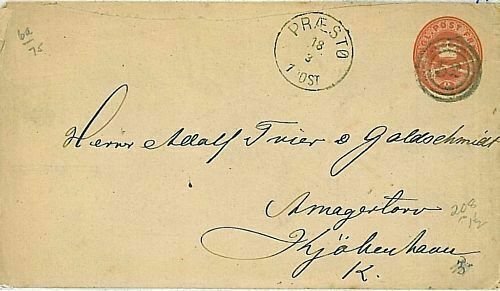 6a
75
PRÆSTØ
18
3
1 POST
KGL. POST FRM.
Herrer Adolf Trier & Goldschmidt
Amagertorv
Kjöbenhavn
K.